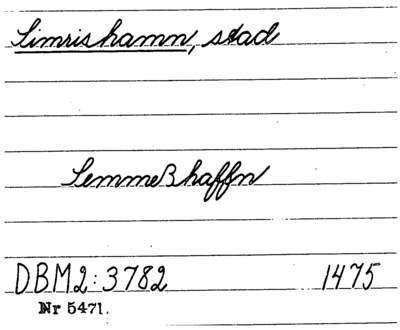 Simrishamn, stad
Semmeßhaffn
DBM2:3782 1475
Nr 5471.